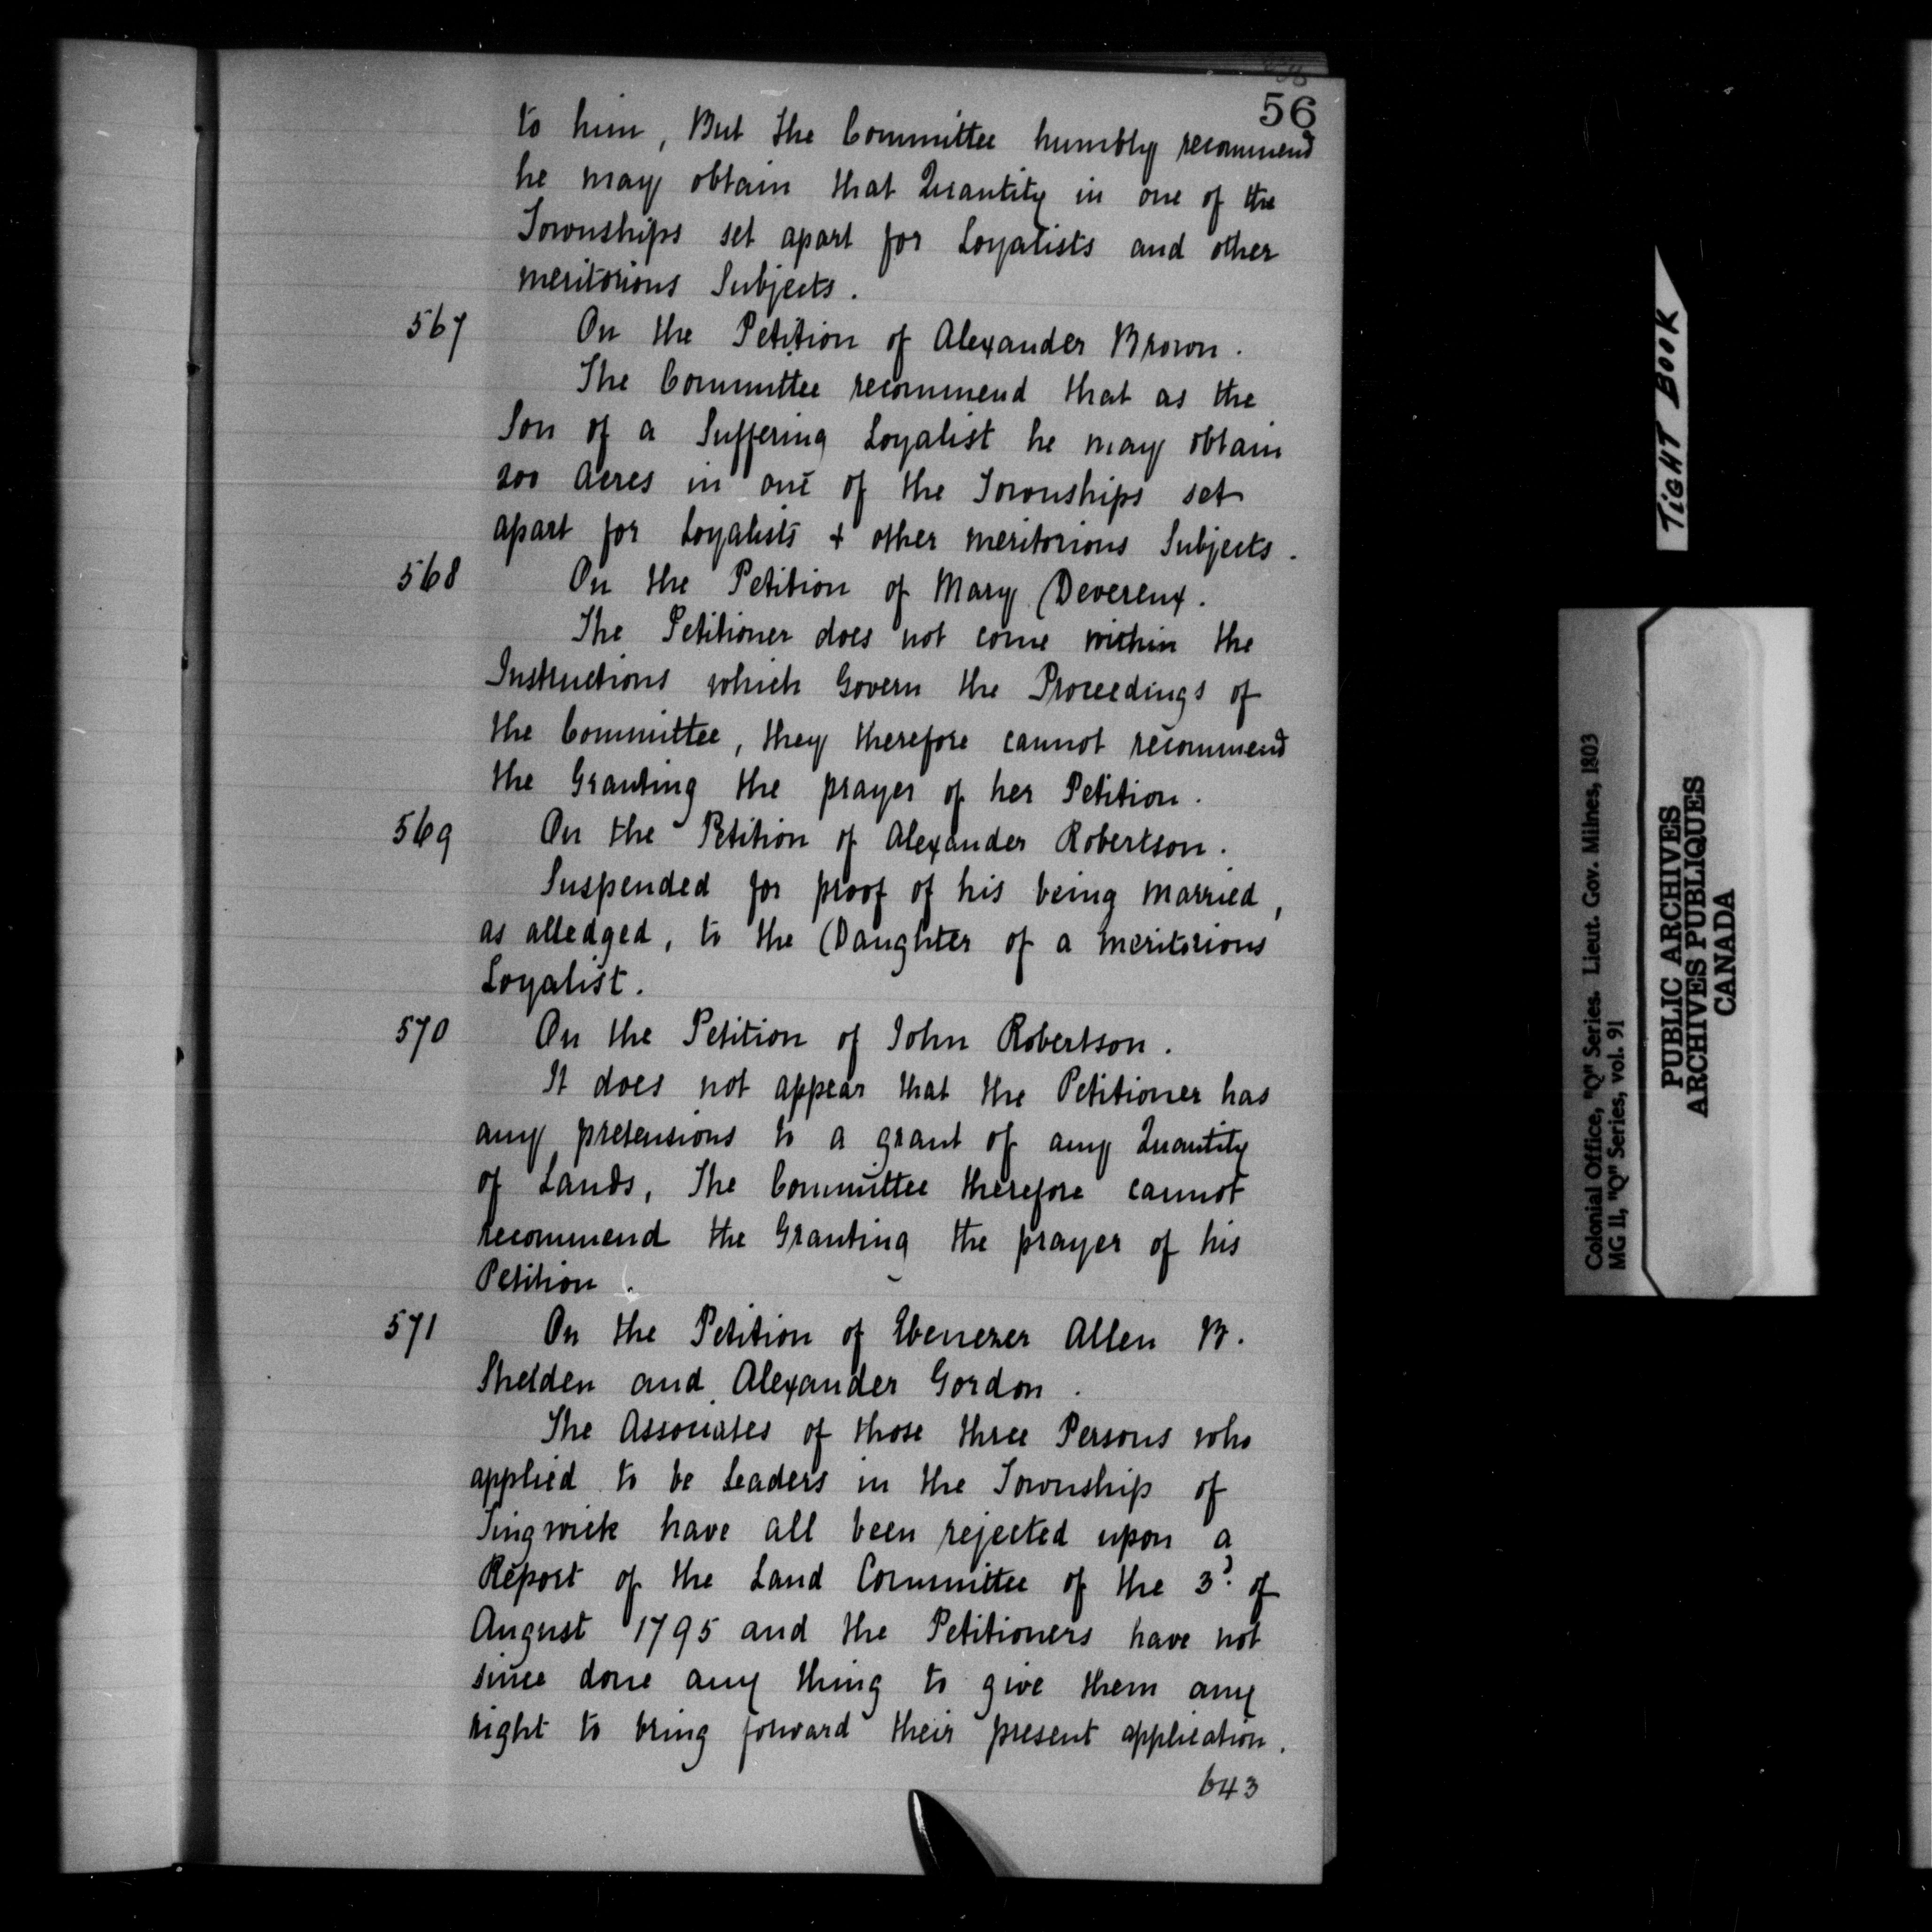 56
to him, But the Committee humbly recommend
he may obtain that Quantity in one of the
Townships set apart for Loyalists and other
meritorious Subjects.
567 On the Petition of Alexander Brown.
The Committee recommend that as the
Son of a Suffering Loyalist he may obtain
200 Acres in one of the Townships set
apart for Loyalists & other meritorious Subjects.
568 On the Petition of Mary Devereux.
The Petitioner does not come within the
Instructions which Govern the Proceedings of
the Committee, they therefore cannot recommend
the Granting the prayer of her Petition.
569 On the Petition of Alexander Robertson.
Suspended for proof of his being married,
as alledged, to the Daughter of a meritorious
Loyalist.
570 On the Petition of John Robertson.
It does not appear that the Petitioner has
any pretensions to a grant of any Quantity
of Lands, The Committee therefore cannot
recommend the Granting the prayer of his
Petition.
571 On the Petition of Ebenezer Allen B.
Shelden and Alexander Gordon.
The Associates of those three Persons who
applied to be Leaders in the Township of
Tingwick have all been rejected upon a
Report of the Land Committee of the 3d. of
August 1795 and the Petitioners have not
since done any thing to give them any
right to bring forward their present application.
643
TIGHT BOOK
Colonial Office, "Q" Series. Lieut. Gov. Milnes, 1803
MG 11, "Q" Series, vol. 91
PUBLIC ARCHIVES
ARCHIVES PUBLIQUES
CANADA